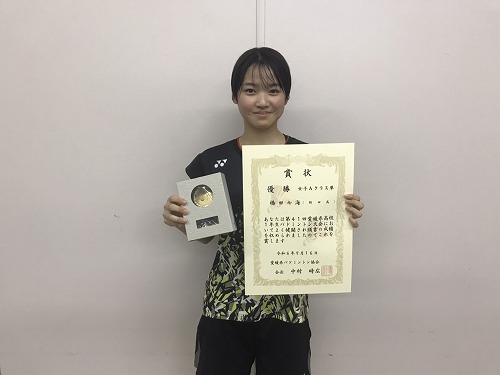 YONEX
賞状
優勝 女子Aクラス単
あなたは第41回愛媛県高校
1年生バドミントン大会にお
いてよく健闘され頭書の成績
を収められましたのでこれを
賞します
令和6年9月16日
愛媛県バドミントン協会
会長 中村 時広